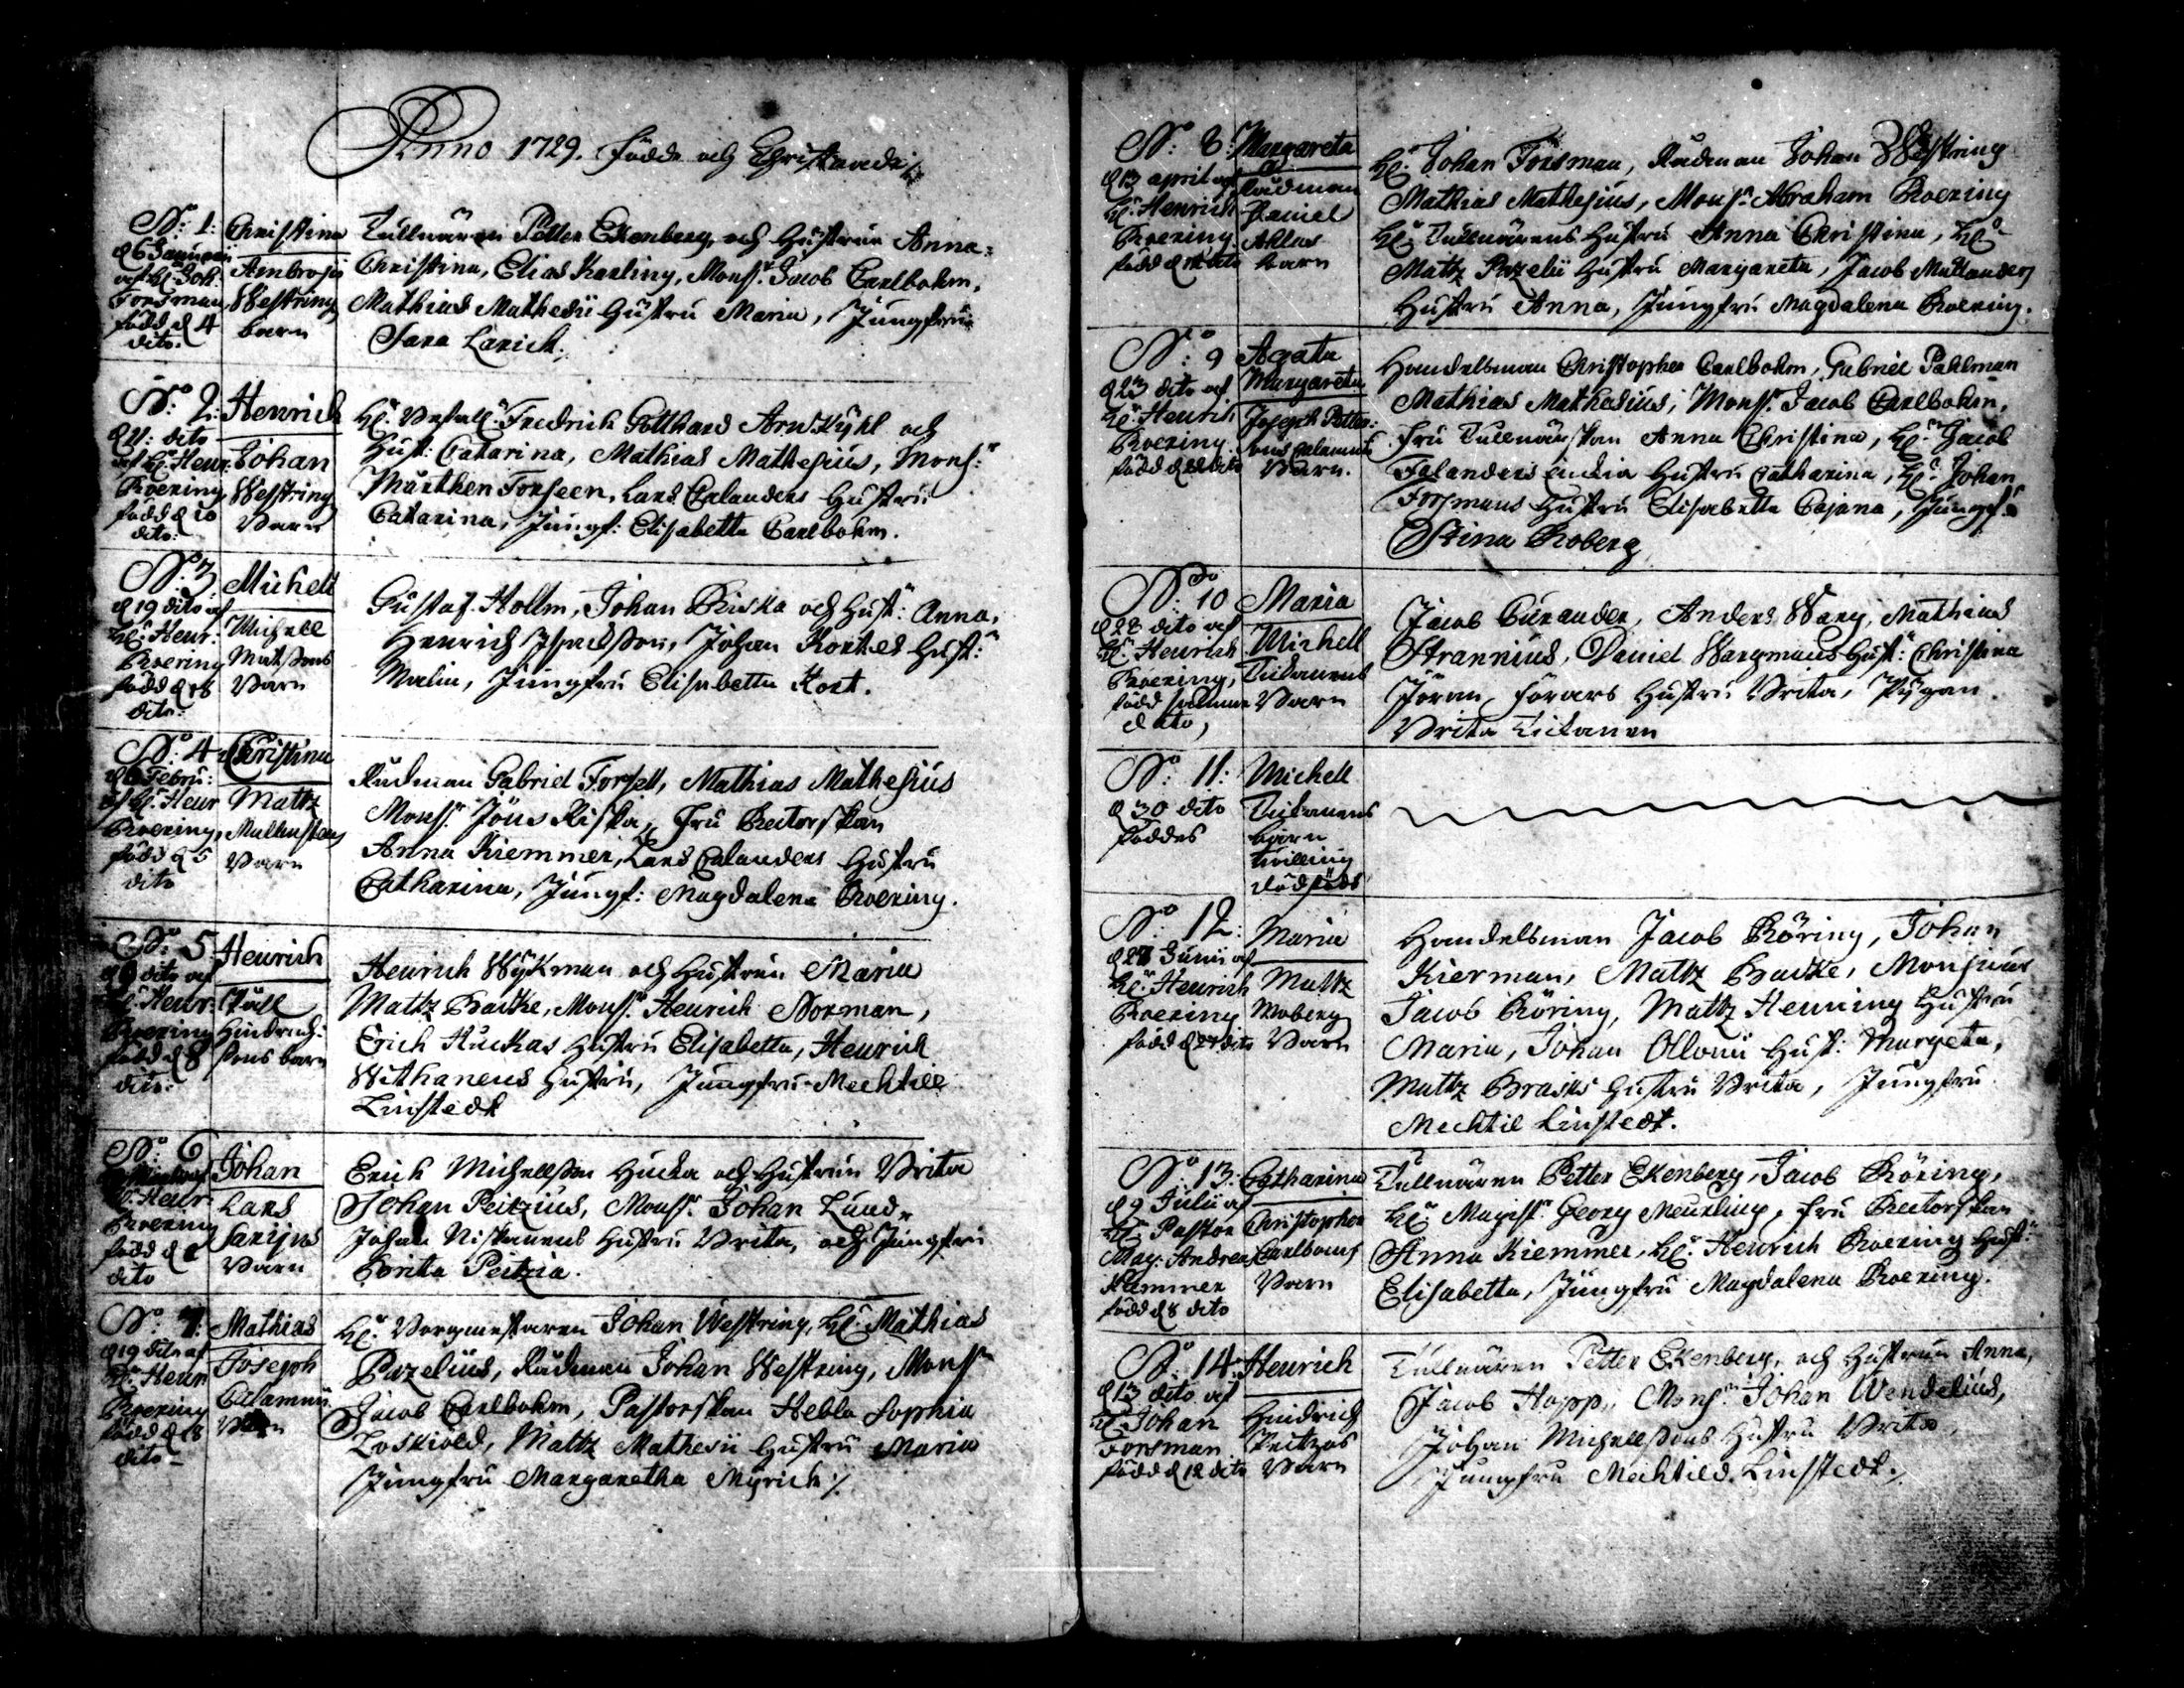 Anno 1729. Födde och Christnade
No: 1:
d 6 Januarii
af H:r Joh:
Forsman
född d 4
dito.
Christina
Ambrosii
Westring
barn
Tullnären Petter Ekenberg, och Hustrun Anna
Christina, Elias Karling, Mons:r Jacob Carlbohm,
Mathias Mathesii Hustru Maria, Jungfru
Sara Larich.
No: 2:
d 11: dito
af H:r Henr:
Roering
född d 10
dito:
Henrich
Johan
Westring
Barn
H:r Fredrich Gotthard Arnkyhl och
Hust: Catarina, Mathias Mathesius, Mons:r
Mårthen Forseen, Lars Calanders Hustru
Catarina, Jungf: Elisabetta Carlbohm.
No: 3
d 19 dito af
H:r Henr:
Roering
född d 18
dito:
Michell
Michell
Matssons
Barn
Gustaf Hollm, Johan Riska och Hust: Anna,
Henrich Isacksson, Johan Kortes Hust:
Malin, Jungfru Elisabetta Kort.
No: 4
d 6 Febru:
af H:r Henr
Roering,
född d 5
dito
Christina
Mattz
Barn
Rådman Gabriel Forsell, Mathias Mathesius
Mons:r Jöns Riska, Fru Rectorskan
Anna Kiemmer, Lars Calanders Hustru
Catharina, Jungf: Magdalena Roering.
No: 5
dito af
H:r Henr:
Roering
född d 8
dito:
Henrich
Påll
Hindrich:
sons barn
Henrich Wykman och Hustrun Maria
Mattz Baitke, Mons:r Henrich Norman,
Erich Huckas Hustru Elisabetta, Henrich
Withanens Hustru, Jungfru Mechtill
Linstedt
No: 6
H:r Henr:
Roering
född d
dito
Johan
Lars
Sarijns
Barn
Erich Michellson Hucka och Hustrun Brita
Johan Peitzius, Mons:r Johan Lund,
Johan Niskanens Hustru Brita, och Jungfru
Brita Peitzia.
No: 7:
d 19 dito af
H:r Henr
Roering
född d 18
dito
Mathias
Joseph
Calamnii
Barn
H:r Borgmestaren Johan Westring, H:r Mathias
Pazelius, Rådman Johan Westring, Mons:r
Jacob Carlbohm, Pastorskan Hebla Sophia
Loskiöld, Mattz Mathesii Hustru Maria
Jungfru Margaretha Myrich
No: 8:
d 13 april af
H:r Henrich
Roering.
född d dito
Margareta
Rådman
Daniel
Ahlas
barn
H:r Johan Forsman, Rådman Johan Westring
Mathias Mathesius, Mons:r Abraham Roering
H:r Tullnärens Hustru Anna Christina, H:r
Mattz Pazelii Hustru Margareta, Jacob Matlanders
Hustru Anna, Jungfru Magdalena Roering.
No: 9
d 23 dito af
H:r Henrich
Roering.
född d 22 dito
Agata
Margareta
Joseph Petter:
sons
Barn.
Handelsman Christopher Carlbohm, Gabriel Pahlman
Mathias Mathesius, Mons:r Jacob Carlbohm,
Fru Tullnärskan Anna Christina, H:r Jacob
Falanders Enkia Hustru Catharina, H:r Johan
Forsmans Hustru Elisabetta Cajana, Jungf:
Stina Roberg
No: 10
d 28 dito af
H:r Henrich
Roering,
född samma
dato,
Maria
Michell
Tickanens
Barn
Jacob Curander, Anders Warg, Mathias
Strannius, Daniel Wargmans Hust: Christina
Jöran Förars Hustru Brita, Pygan
Brita Tickanen
No: 11:
d 30 dito
föddes
Michell
Tickanens
barn
twilling
dödfödt
No: 12:
d 28 Junii af
H:r Henrich
Roering
född d 27 dito
Maria
Mattz
Moberg
Barn
Handelsman Jacob Röring, Johan
Kierman, Mattz Baitke, Monsieur
Jacob Röring, Mattz Henning Hustru
Maria, Johan Ollonii Hust: Margeta,
Mattz Brasks Hustru Brita, Jungfru
Mechtil Linstedt.
No: 13:
d 9 Julii af
H:r Pastor
Mag: Andreas
Kiemmer
född d 8 dito
Catharina
Christopher
Carlboms
Barn
Tullnären Petter Ekenberg, Jacob Röring,
H:r Magist:r Georg Meurling, Fru Rectorskan
Anna Kiemmer, H:r Henrich Roering Hust:
Elisabetta, Jungfru Magdalena Roering.
No: 14:
d 13 dito af
H:r Johan
Forsman
född d 12 dito
Henrich
Hindrich
Peitzas
Barn
Tullnären Petter Ekenberg, och Hustrun Anna,
Jacob Hopp, Mons:r Johan Wendelius,
Johan Michellsons Hustru Brita
Jungfru Mechtild Linstedt.